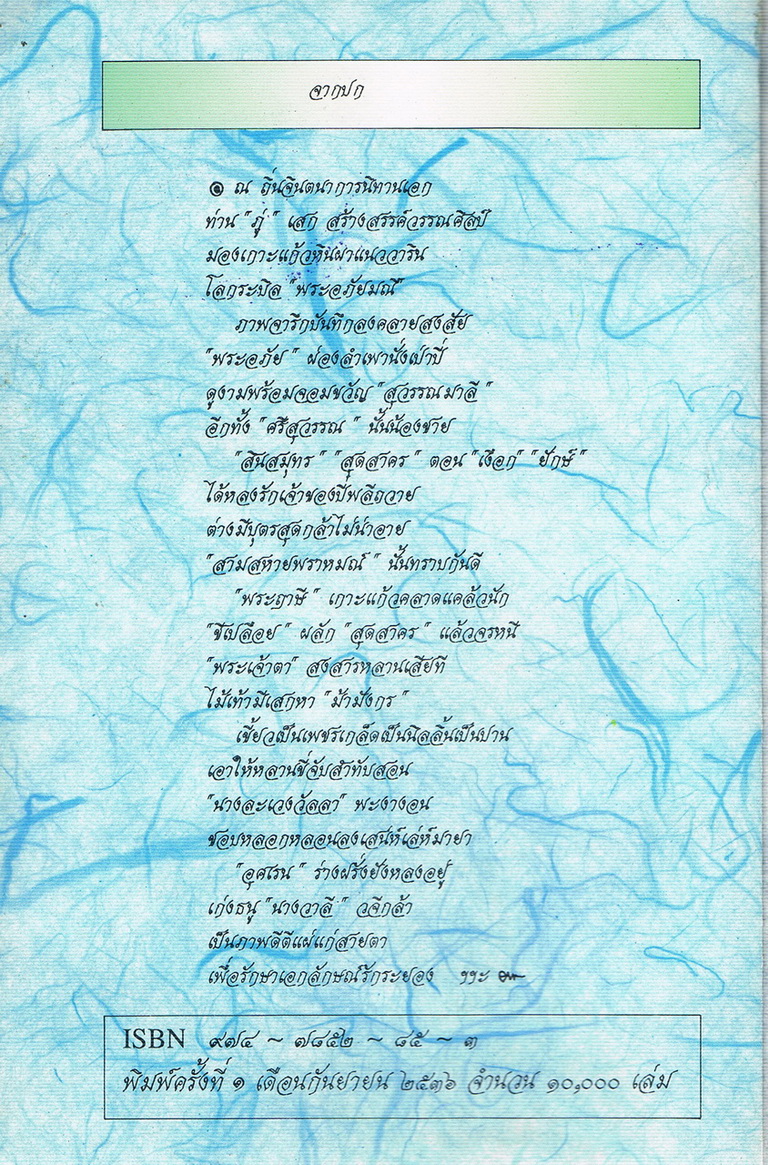 จากปก
๏ ณ ถิ่นจินตนาการนิทานเอก
ท่าน "ภู่" เสก สร้างสรรค์วรรณศิลป์
มองเกาะแก้วหินผาแนววาริน
โลกระบิล "พระอภัยมณี"
ภาพจารึกบันทึกลงคลายสงสัย
"พระอภัย" ผ่องลำเพานั่งเป่าปี่
ดูงามพร้อมจอมขวัญ "สุวรรณมาลี"
อีกทั้ง "ศรีสุวรรณ" นั้นน้องชาย
"สินสมุทร" "สุดสาคร" ตอน "เงือก" "ยักษ์"
ได้หลงรักเจ้าของปี่พลีถวาย
ต่างมีบุตรสุดกล้าไม่น่าอาย
"สามสหายพราหมณ์" นั้นทราบกันดี
"พระฤาษี" เกาะแก้วคลาดแคล้วนัก
"ชีเปลือย" ผลัก "สุดสาคร" แล้วจรหนี
"พระเจ้าตา" สงสารหลานเสียที
ไม้เท้ามีเสกหา "ม้ามังกร"
เขี้ยวเป็นเพชรเกล็ดเป็นนิลลิ้นเป็นปาน
เอาให้หลานขี่จับสำทับสอน
"นางละเวงวัลลา" พะงางอน
ชอบหลอกหลอนลงเสน่ห์เล่ห์มายา
"อุศเรน" ร่างฝรั่งยังหลงอยู่
เก่งธนู "นางวาลี" วจีกล้า
เป็นภาพดีตีแผ่แก่สายตา
เพื่อรักษาเอกลักษณ์รักระยอง ฯฯะ ๛
ISBN ๙๗๔ ~ ๗๘๕๒ ~ ๘๕ ~ ๓
พิมพ์ครั้งที่ ๑ เดือนกันยายน ๒๕๓๖ จำนวน ๑๐,๐๐๐ เล่ม